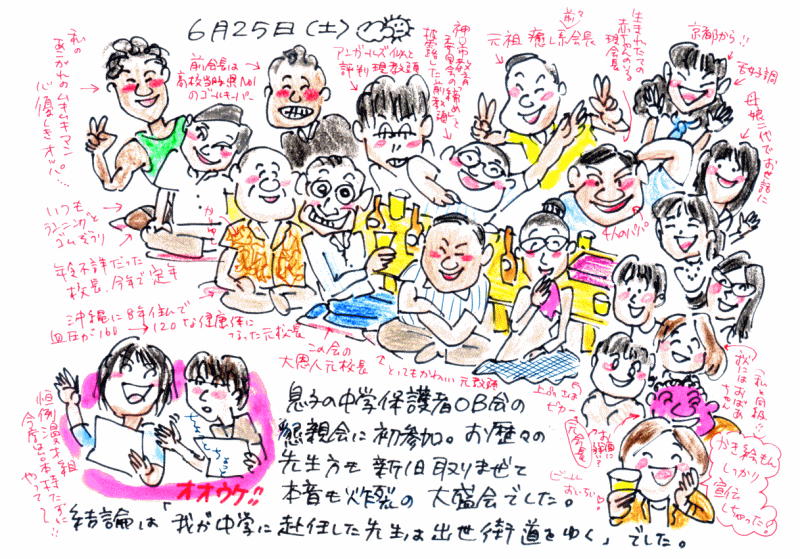 6月25日(土)
私の
あこがれの
ムキムキマン
心優しき
オッパ…
前会長は
高校当時県No1
のゴールキーパー
アンガールズ似と
評判現教頭
元祖癒し系会長
前々
生まれたての
赤ちゃんのいる
現会長
京都から!!
絶好調
母娘二代でお世話に
4人のパパ
いつも
ランニングと
ゴムぞうり
年令不詳だった
校長、今年で定年
沖縄に8年住んで
血圧が160→120な健康体に
なった元校長
この会の
大恩人元校長
とってもかわいい元教師
ビール
おいしい
かき絵もん
しっかり
宣伝
しちゃったの
恒例漫才組
今度は台本持たずに
やって〜!!
ちょっと
ちょっと
オオウケ!!
息子の中学保護者OB会の
懇親会に初参加。お歴々の
先生方も新旧取りまぜて
本音も炸裂の大盛会でした。
結論は「我が中学に赴任した先生は出世街道をゆく」でした。